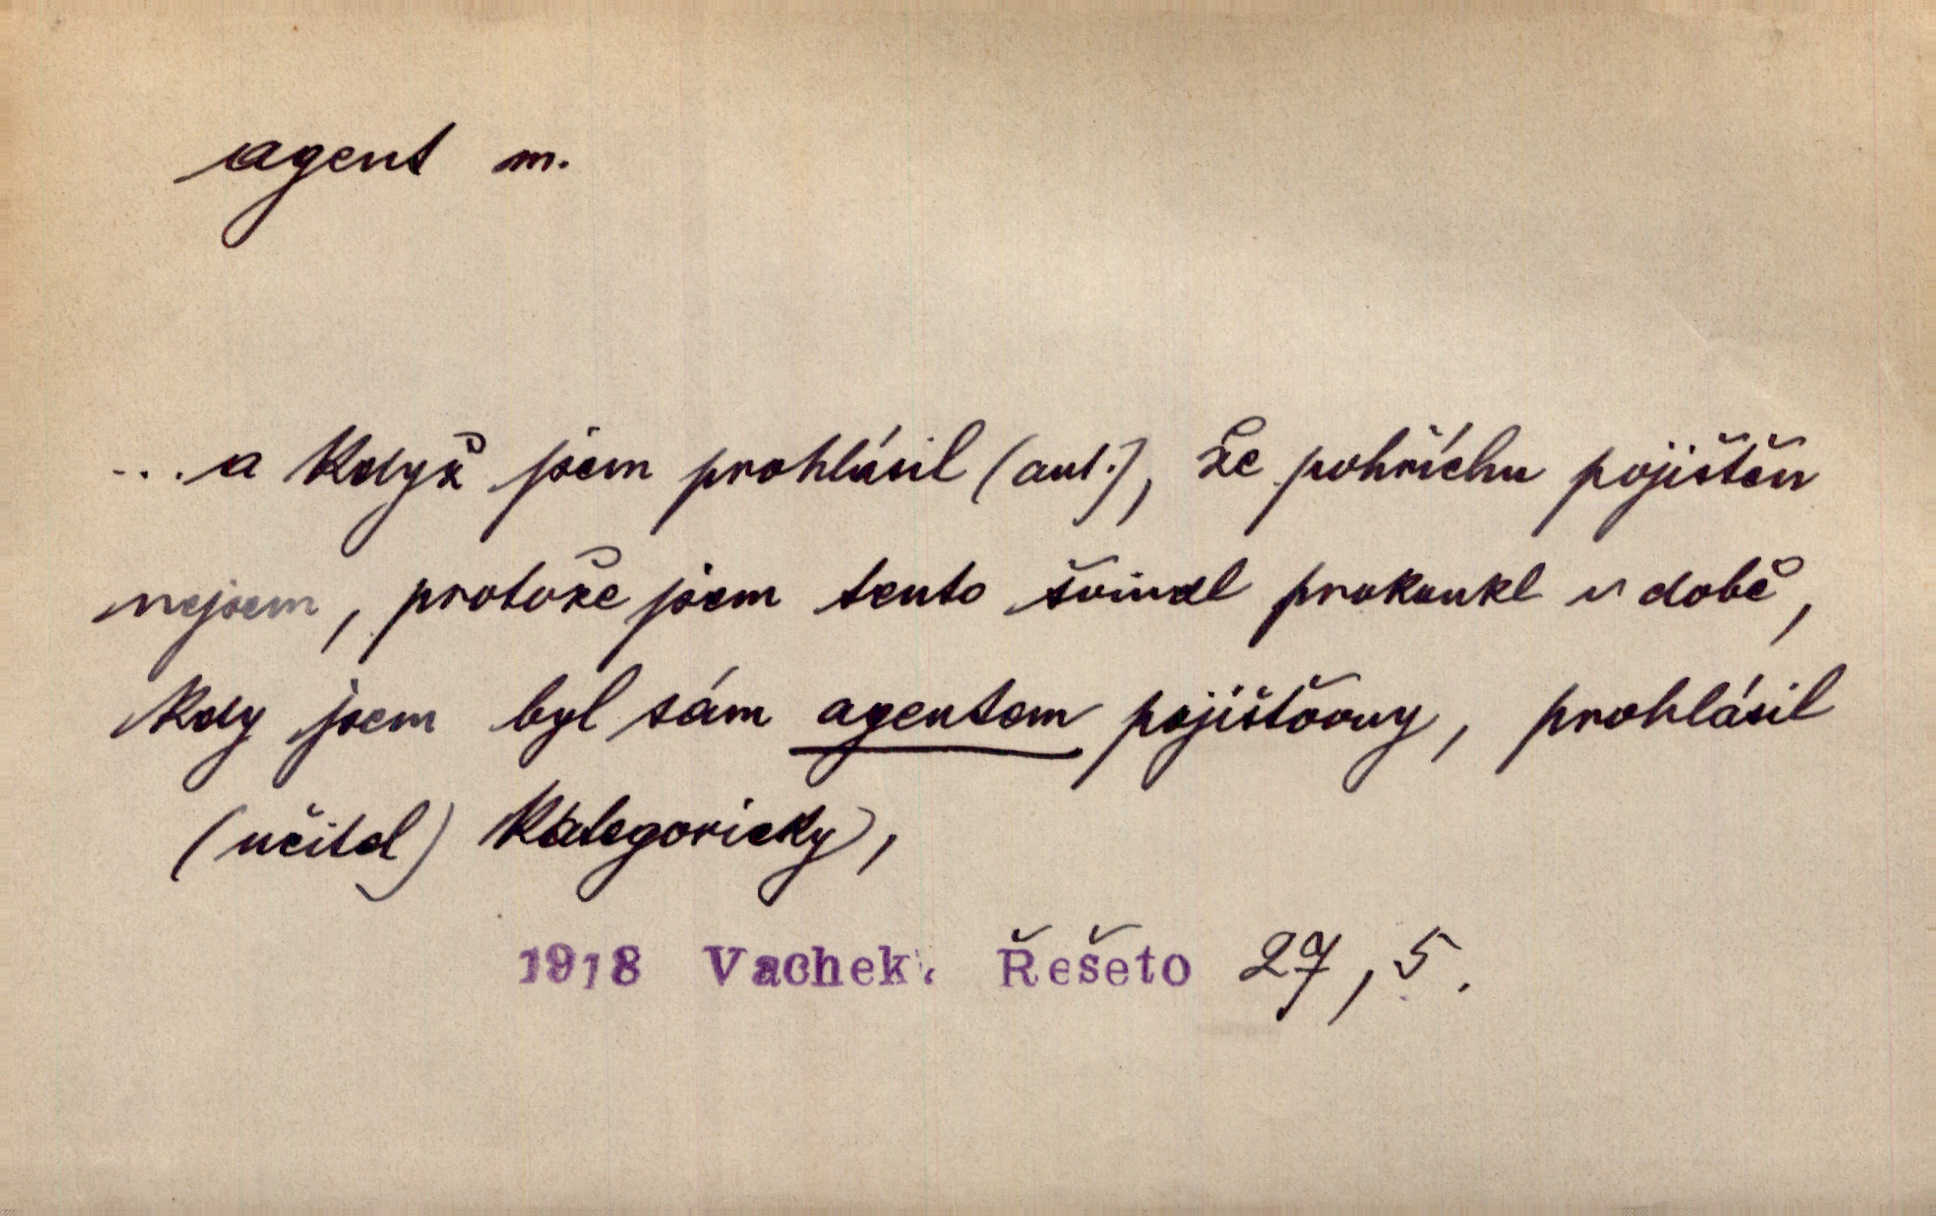 agent m.
... a když jsem prohlásil (aut.), že pohříchu pojištěn
nejsem, protože jsem tento švindl prokoukl v době,
kdy jsem byl sám agentem pojišťovny, prohlásil
(učitel) kategoricky,
1918 Vachek. Řešeto 27, 5.